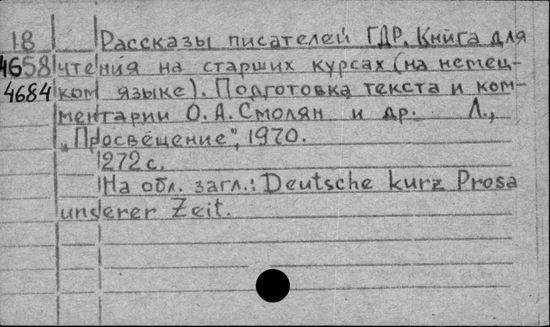 18 Рассказы писателей ГДР. Книга для
4658 чтения на старших курсах (на немец-
4684 ком языке). Подготовка текста и ком-
ментарии О. А. Смолян и др. Л.,
„Просвещение", 1970.
272 с.
На обл. загл.: Deutsche kurz Prosa
unserer Zeit.